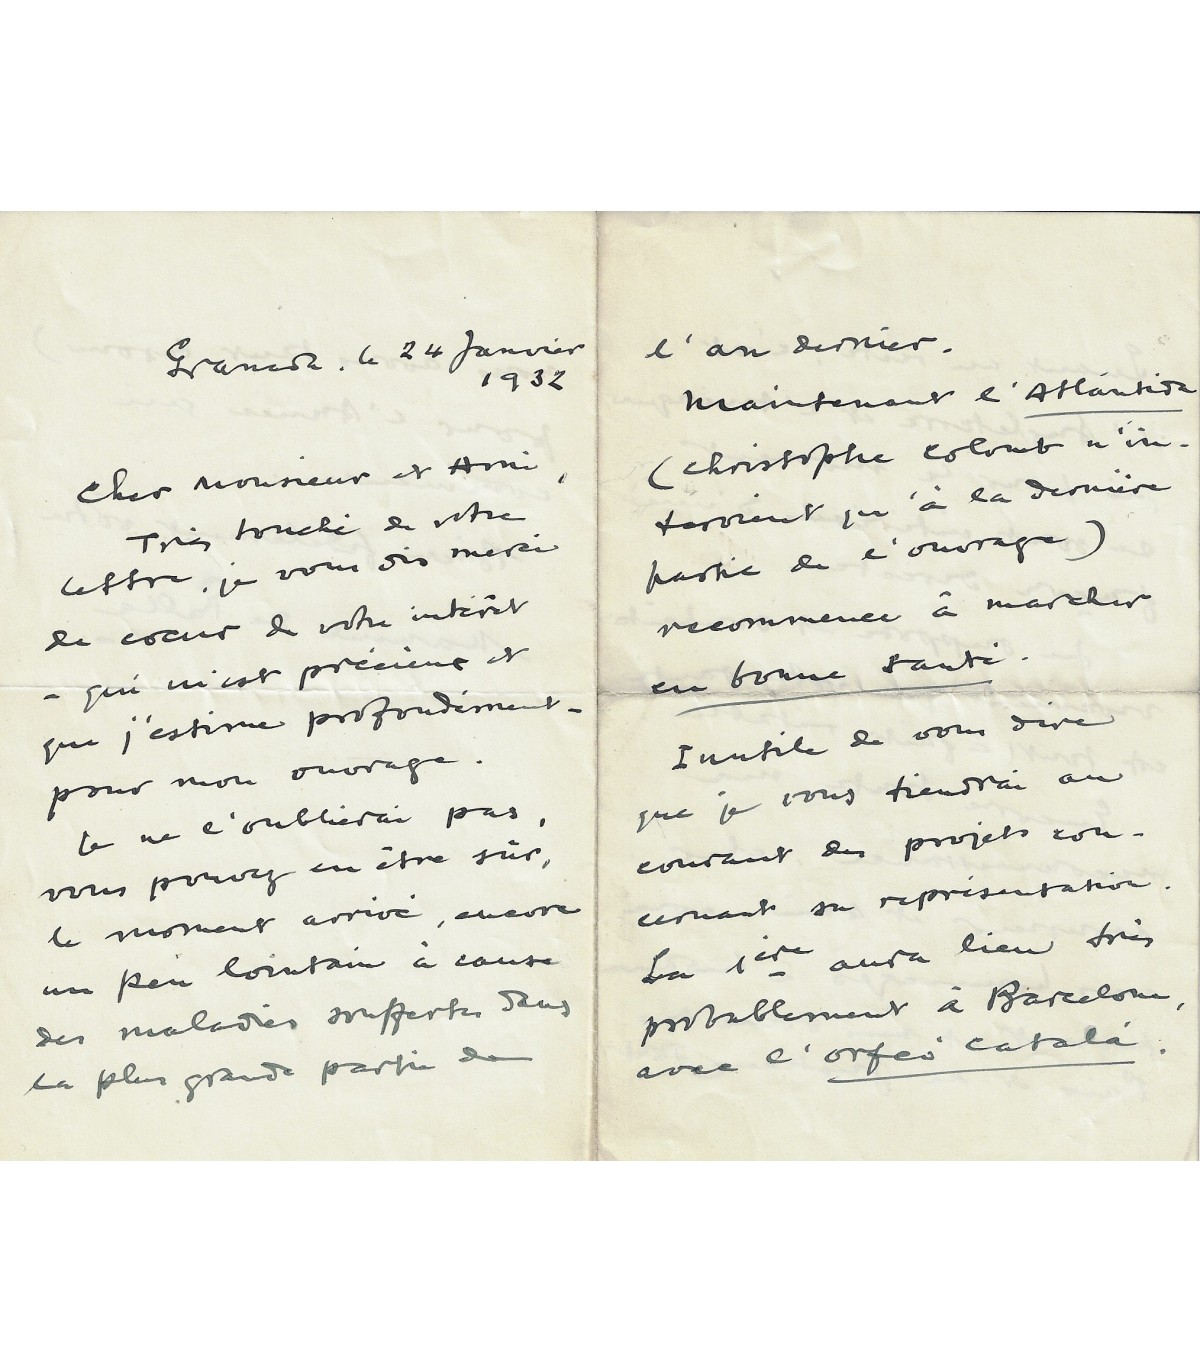 Granada, le 24 Janvier
1932
Cher Monsieur et Ami,
Très touché de votre
lettre, je vous dis merci
de coeur de votre intérêt
- qui m'est précieux et
que j'estime profondément -
pour mon ouvrage.
Je ne l'oublierai pas,
vous pouvez en être sûr,
le moment arrivé, encore
un peu lointain à cause
des maladies souffertes dans
la plus grande partie de
l'an dernier.
Maintenant l'Atlántida
(Christophe Colomb n'in-
tervient qu'à la dernière
partie de l'ouvrage)
recommence à marcher
en bonne santé.
Inutile de vous dire
que je vous tiendrai au
courant des projets con-
cernant sa représentation.
La 1ère aura lieu très
probablement à Barcelone,
avec l'Orfeó Catalá.